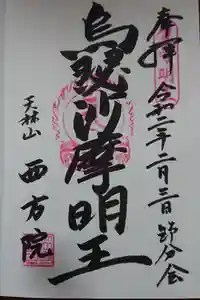 奉拝 令和二年二月三日 節分会
烏瑟沙摩明王
天林山
西方院